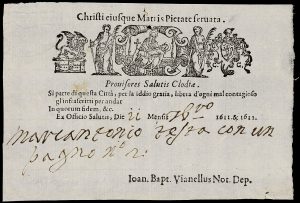 Christi eiusque Matris Pietate seruata.
Prouisores Salutis Clodiæ.
Si parte di questa Città, per la iddio gratia, libera d'ogni mal contagioso
gl'infrascritti per andar
In quorum fidem, &c.
Ex Officio Salutis, Die ii Mensis 1611. & 1612.
Marcantonio Testa con un
pagno n.º 2.
Ioan. Bapt. Vianellus Not. Dep.